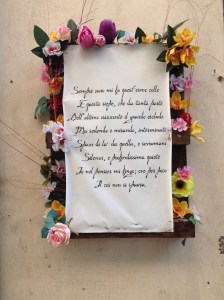 Sempre caro mi fu quest'ermo colle
E questa siepe, che da tanta parte
Dell'ultimo orizzonte il guardo esclude.
Ma sedendo e mirando, interminati
Spazi di là da quella, e sovrumani
Silenzi, e profondissima quiete
Io nel pensier mi fingo; ove per poco
Il cor non si spaura.